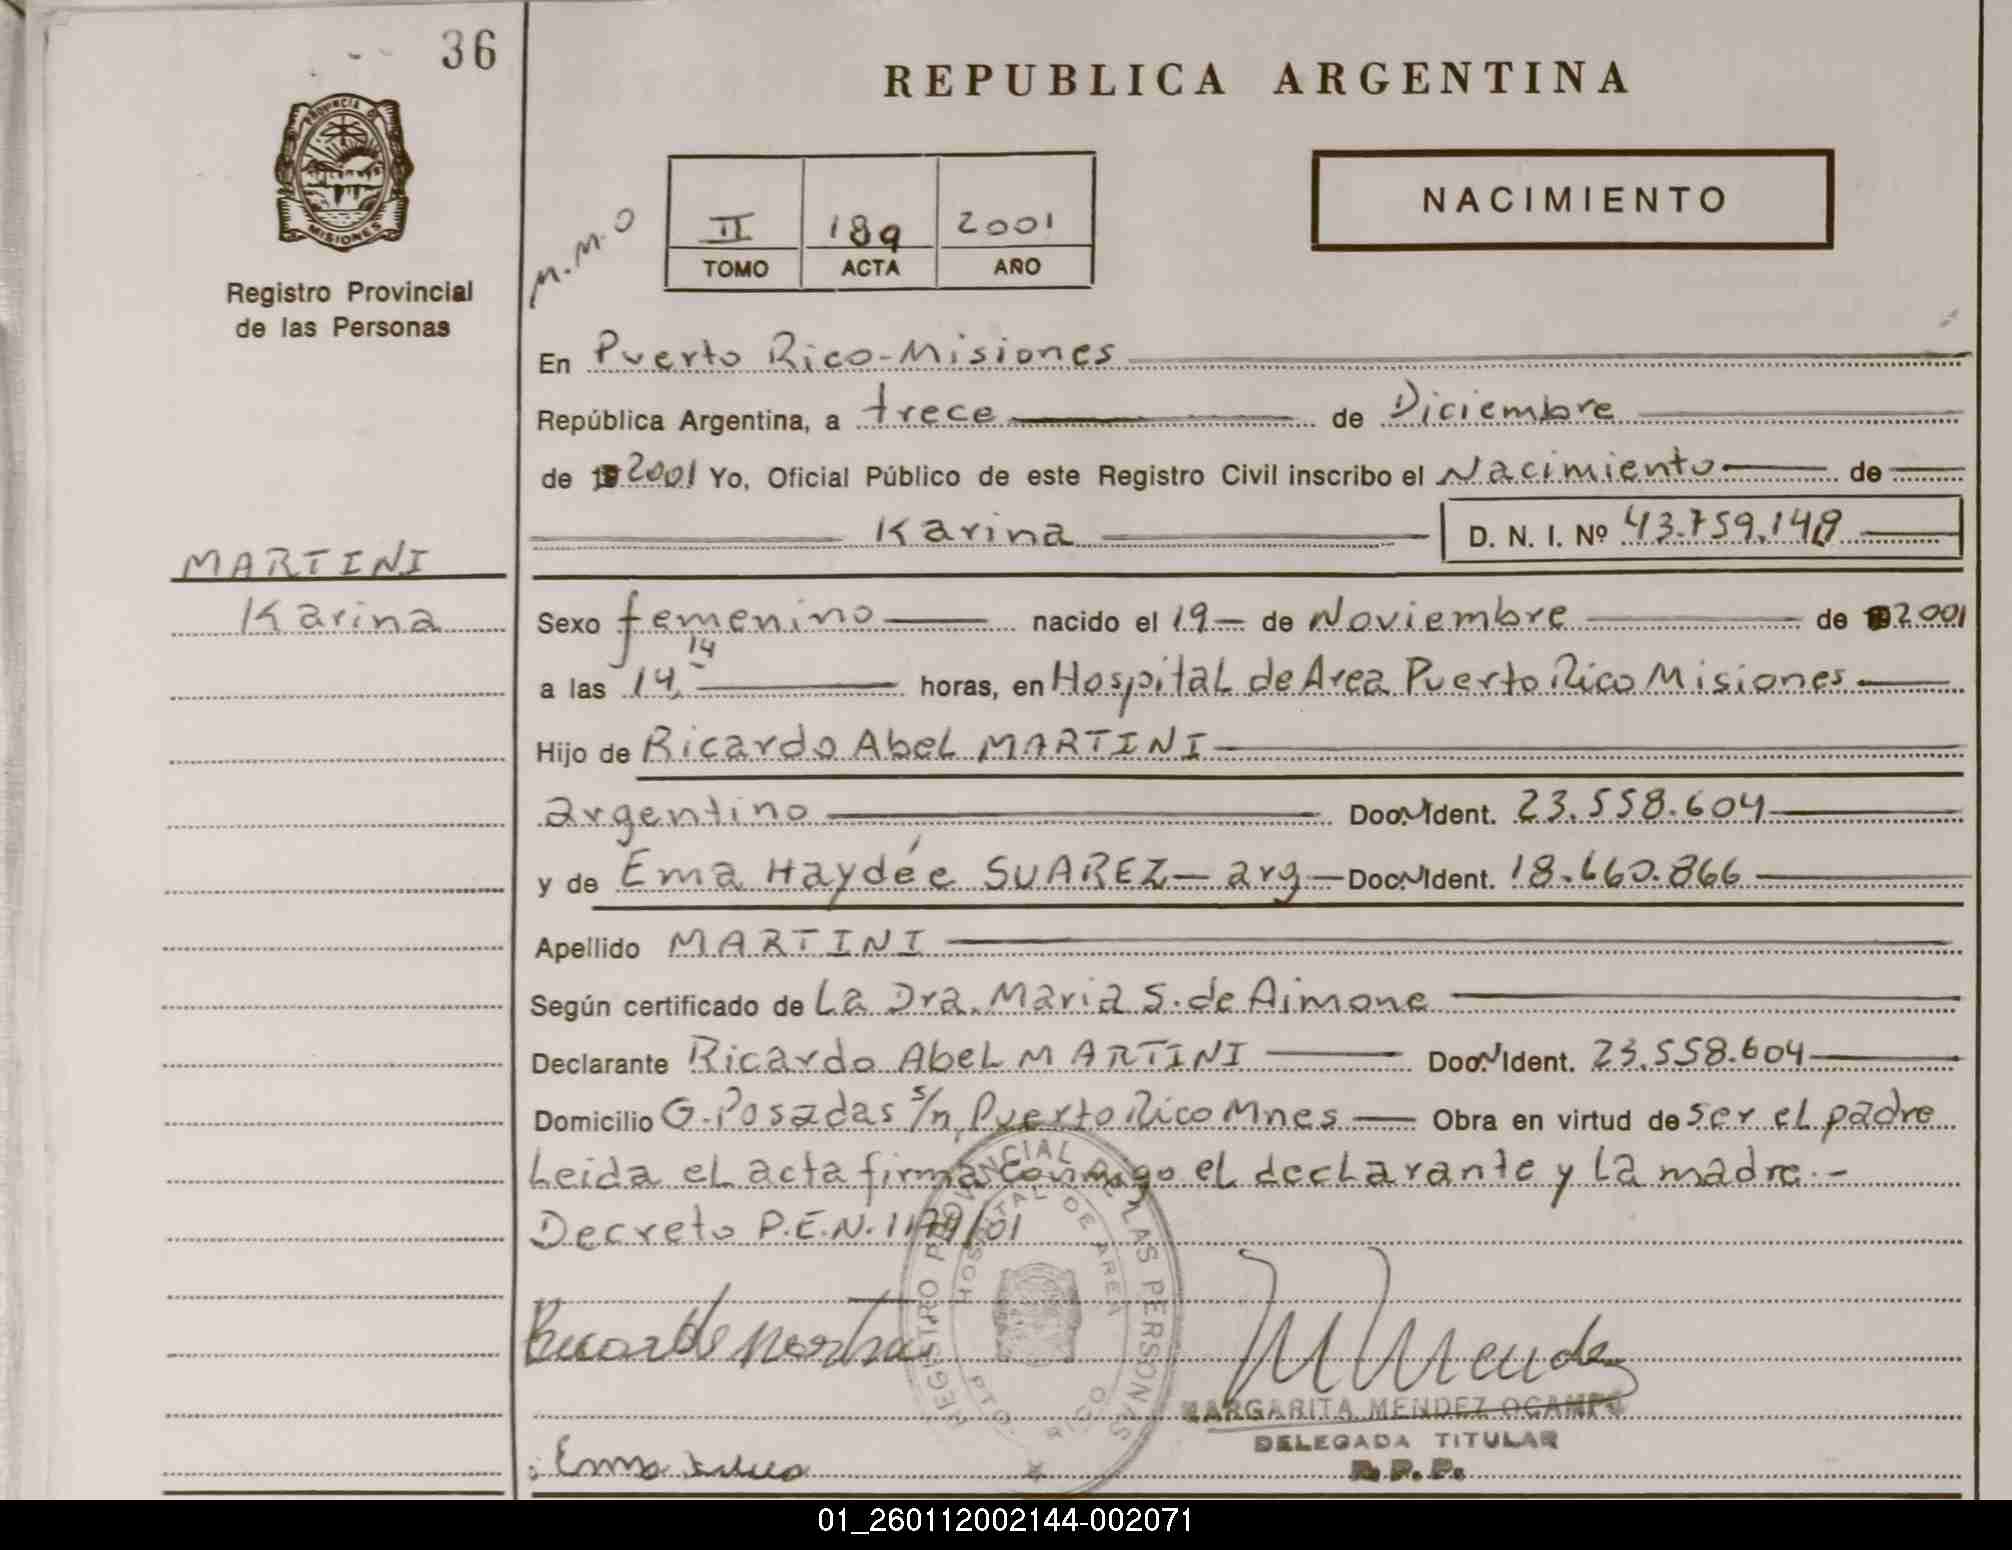 36
PROVINCIA DE
MISIONES
Registro Provincial
de las Personas
MARTINI
Karina
REPUBLICA ARGENTINA
NACIMIENTO
M.M.O
II 189 2001
TOMO ACTA AÑO
En Puerto Rico-Misiones
República Argentina, a trece de Diciembre
de 2001 Yo, Oficial Público de este Registro Civil inscribo el Nacimiento de
Karina D. N. I. Nº 43.759.149
Sexo femenino nacido el 19 de Noviembre de 2001
a las 14,14 horas, en Hospital de Area Puerto Rico Misiones
Hijo de Ricardo Abel MARTINI
argentino Doc. N Ident. 23.558.604
y de Ema Haydée SUAREZ - arg - Doc. N Ident. 18.660.866
Apellido MARTINI
Según certificado de La Dra. Maria S. de Aimone
Declarante Ricardo Abel MARTINI Doc. N Ident. 23.558.604
Domicilio G. Posadas s/n, Puerto Rico Mnes Obra en virtud de ser el padre
Leida el acta firma conmigo el declarante y la madre.-
Decreto P.E.N. /01
REGISTRO PROVINCIAL DE LAS PERSONAS
HOSPITAL DE AREA
PTO. RICO
MARGARITA MENDEZ OCAMPO
DELEGADA TITULAR
R.P.P.
01_260112002144-002071